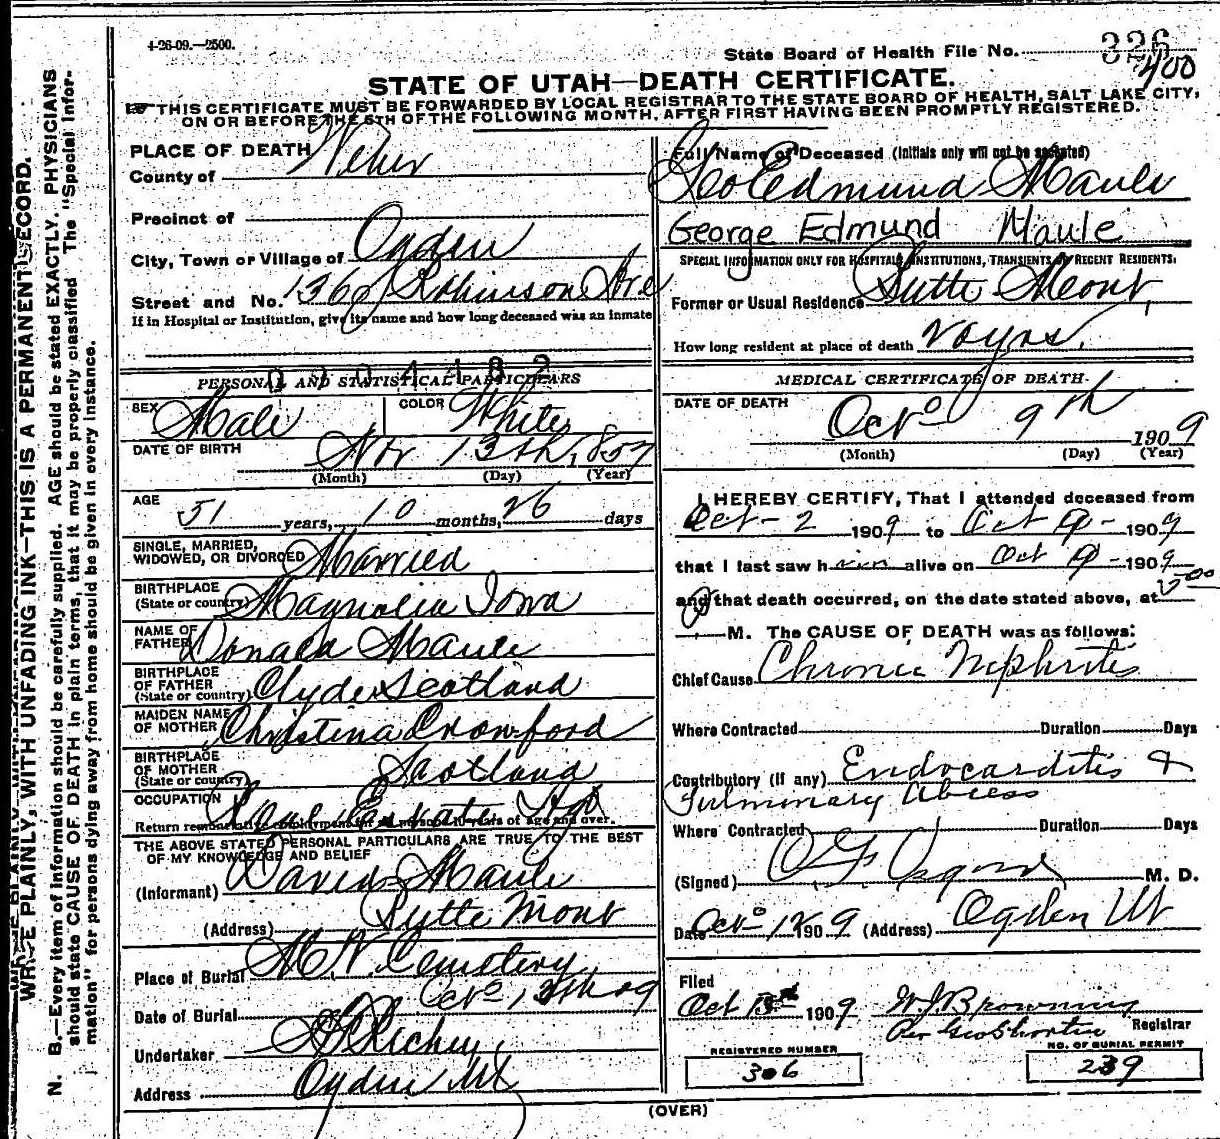 4-26-09.—2500.
State Board of Health File No. 326
400
STATE OF UTAH—DEATH CERTIFICATE.
THIS CERTIFICATE MUST BE FORWARDED BY LOCAL REGISTRAR TO THE STATE BOARD OF HEALTH, SALT LAKE CITY,
ON OR BEFORE THE 5TH OF THE FOLLOWING MONTH, AFTER FIRST HAVING BEEN PROMPTLY REGISTERED.
PLACE OF DEATH
County of Weber
Precinct of
City, Town or Village of Ogden
Street and No. Robinson Ave
If in Hospital or Institution, give its name and how long deceased was an inmate
PERSONAL AND STATISTICAL PARTICULARS
SEX Male COLOR White
DATE OF BIRTH Nov 13th 1857
(Month) (Day) (Year)
AGE 51 years, 10 months, 26 days
SINGLE, MARRIED,
WIDOWED, OR DIVORCED Married
BIRTHPLACE
(State or country) Magnolia Iowa
NAME OF
FATHER Donald Maule
BIRTHPLACE
OF FATHER
(State or country) Clyde Scotland
MAIDEN NAME
OF MOTHER Christina Crawford
BIRTHPLACE
OF MOTHER
(State or country) Scotland
OCCUPATION Real Estate Agt
Return remunerative employment for all persons 10 years of age and over.
THE ABOVE STATED PERSONAL PARTICULARS ARE TRUE TO THE BEST
OF MY KNOWLEDGE AND BELIEF
(Informant) David Maule
(Address) Butte Mont
Place of Burial Cemetery
Date of Burial Oct 13th 09
Undertaker Richey
Address Ogden Ut
Full Name of Deceased (Initials only will not be accepted)
Geo Edmund Maule
George Edmund Maule
SPECIAL INFORMATION ONLY FOR HOSPITALS, INSTITUTIONS, TRANSIENTS, OR RECENT RESIDENTS:
Former or Usual Residence Butte Mont
How long resident at place of death yrs.
MEDICAL CERTIFICATE OF DEATH.
DATE OF DEATH Oct 9th 1909
(Month) (Day) (Year)
I HEREBY CERTIFY, That I attended deceased from
Oct - 2 1909 to Oct 9 - 1909
that I last saw him alive on Oct 9 - 1909
and that death occurred, on the date stated above, at
M. The CAUSE OF DEATH was as follows:
Chief Cause Chronic Nephritis
Where Contracted Duration Days
Contributory (if any) Endocarditis &
Pulmonary Abcess
Where Contracted Duration Days
(Signed) M. D.
Date Oct 12 1909 (Address) Ogden Ut
Filed
Oct 13 1909 W J Browning
Per Geo Shorten Registrar
REGISTERED NUMBER NO. OF BURIAL PERMIT
306 239
(OVER)
N. B.—Every item of information should be carefully supplied. AGE should be stated EXACTLY. PHYSICIANS
should state CAUSE OF DEATH in plain terms, that it may be properly classified. The "Special Infor-
mation" for persons dying away from home should be given in every instance.
WRITE PLAINLY, WITH UNFADING INK—THIS IS A PERMANENT RECORD.